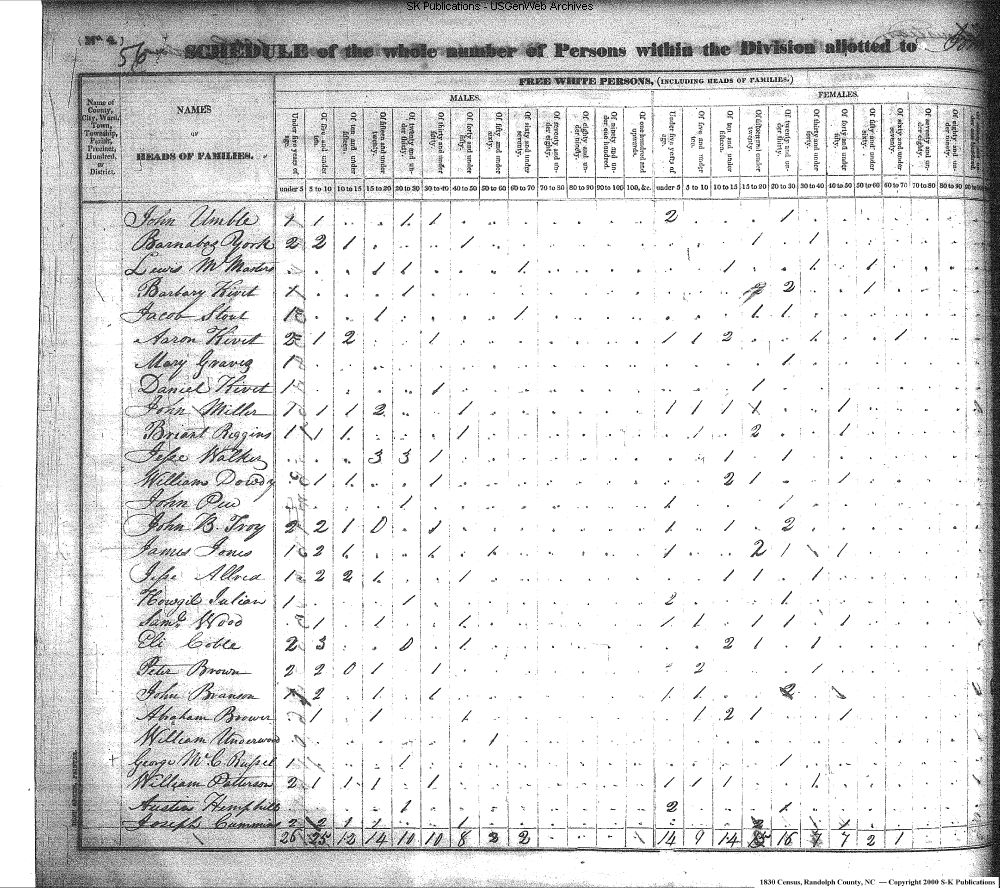 SK Publications - USGenWeb Archives
(No. 4.)
56
SCHEDULE of the whole number of Persons within the Division allotted to
FREE WHITE PERSONS, (INCLUDING HEADS OF FAMILIES.)
MALES. FEMALES.
Name of County, City, Ward, Town, Township, Parish, Precinct, Hundred, or District.
NAMES
OF
HEADS OF FAMILIES.
Under five years of age. Of five and under ten. Of ten and under fifteen. Of fifteen and under twenty. Of twenty and under thirty. Of thirty and under forty. Of forty and under fifty. Of fifty and under sixty. Of sixty and under seventy. Of seventy and under eighty. Of eighty and under ninety. Of ninety and under one hundred. Of one hundred and upwards. Under five years of age. Of five and under ten. Of ten and under fifteen. Of fifteen and under twenty. Of twenty and under thirty. Of thirty and under forty. Of forty and under fifty. Of fifty and under sixty. Of sixty and under seventy. Of seventy and under eighty. Of eighty and under ninety.
under 5 5 to 10 10 to 15 15 to 20 20 to 30 30 to 40 40 to 50 50 to 60 60 to 70 70 to 80 80 to 90 90 to 100 100, &c. under 5 5 to 10 10 to 15 15 to 20 20 to 30 30 to 40 40 to 50 50 to 60 60 to 70 70 to 80 80 to 90
John Umble 1 1 1 1 2 1
Barnabas York 2 2 1 1 1 1
Lewis McMasters 1 1 1 1 1 1
Barbary Kivit 1 1 2 1
Jacob Stout 1 1 1 1 1
Aaron Kivit 2 1 2 1 1 1 2 1 1
Mary Graves 1 1
Daniel Kivit 1 1 1
John Miller 1 1 1 2 1 1 1 1 1 1
Briant Riggins 1 1 1 1 1 2 1
Jesse Walker 3 3 1 1 1
William Dowdy 1 1 1 2 1 1
John Pew 1 1 1
John B. Troy 2 2 1 0 1 1 1 2
James Jones 1 2 1 1 1 1 2 1 1
Jesse Allred 1 2 2 1 1 1 1 1
Howgil Julian 1 1 2 1
Saml. Wood 1 1 1 1 1 1 1 1 1
Eli Coble 2 3 0 1 2 1 1
Peter Brown 2 2 0 1 1 2 1
John Branson 2 1 1 1 1 2 1
Abraham Brower 1 1 1 1 2 1 1
William Underwood 1
George McC. Russel 1 1 1
William Patterson 2 1 1 1 1 1 1 1 1
Austin Hemphill 1 2 1
Joseph Cummins 2 2 1 1 1 2 1
26 25 12 14 10 10 8 2 2 14 9 14 16 7 7 2 1
1830 Census, Randolph County, NC — Copyright 2000 S-K Publications